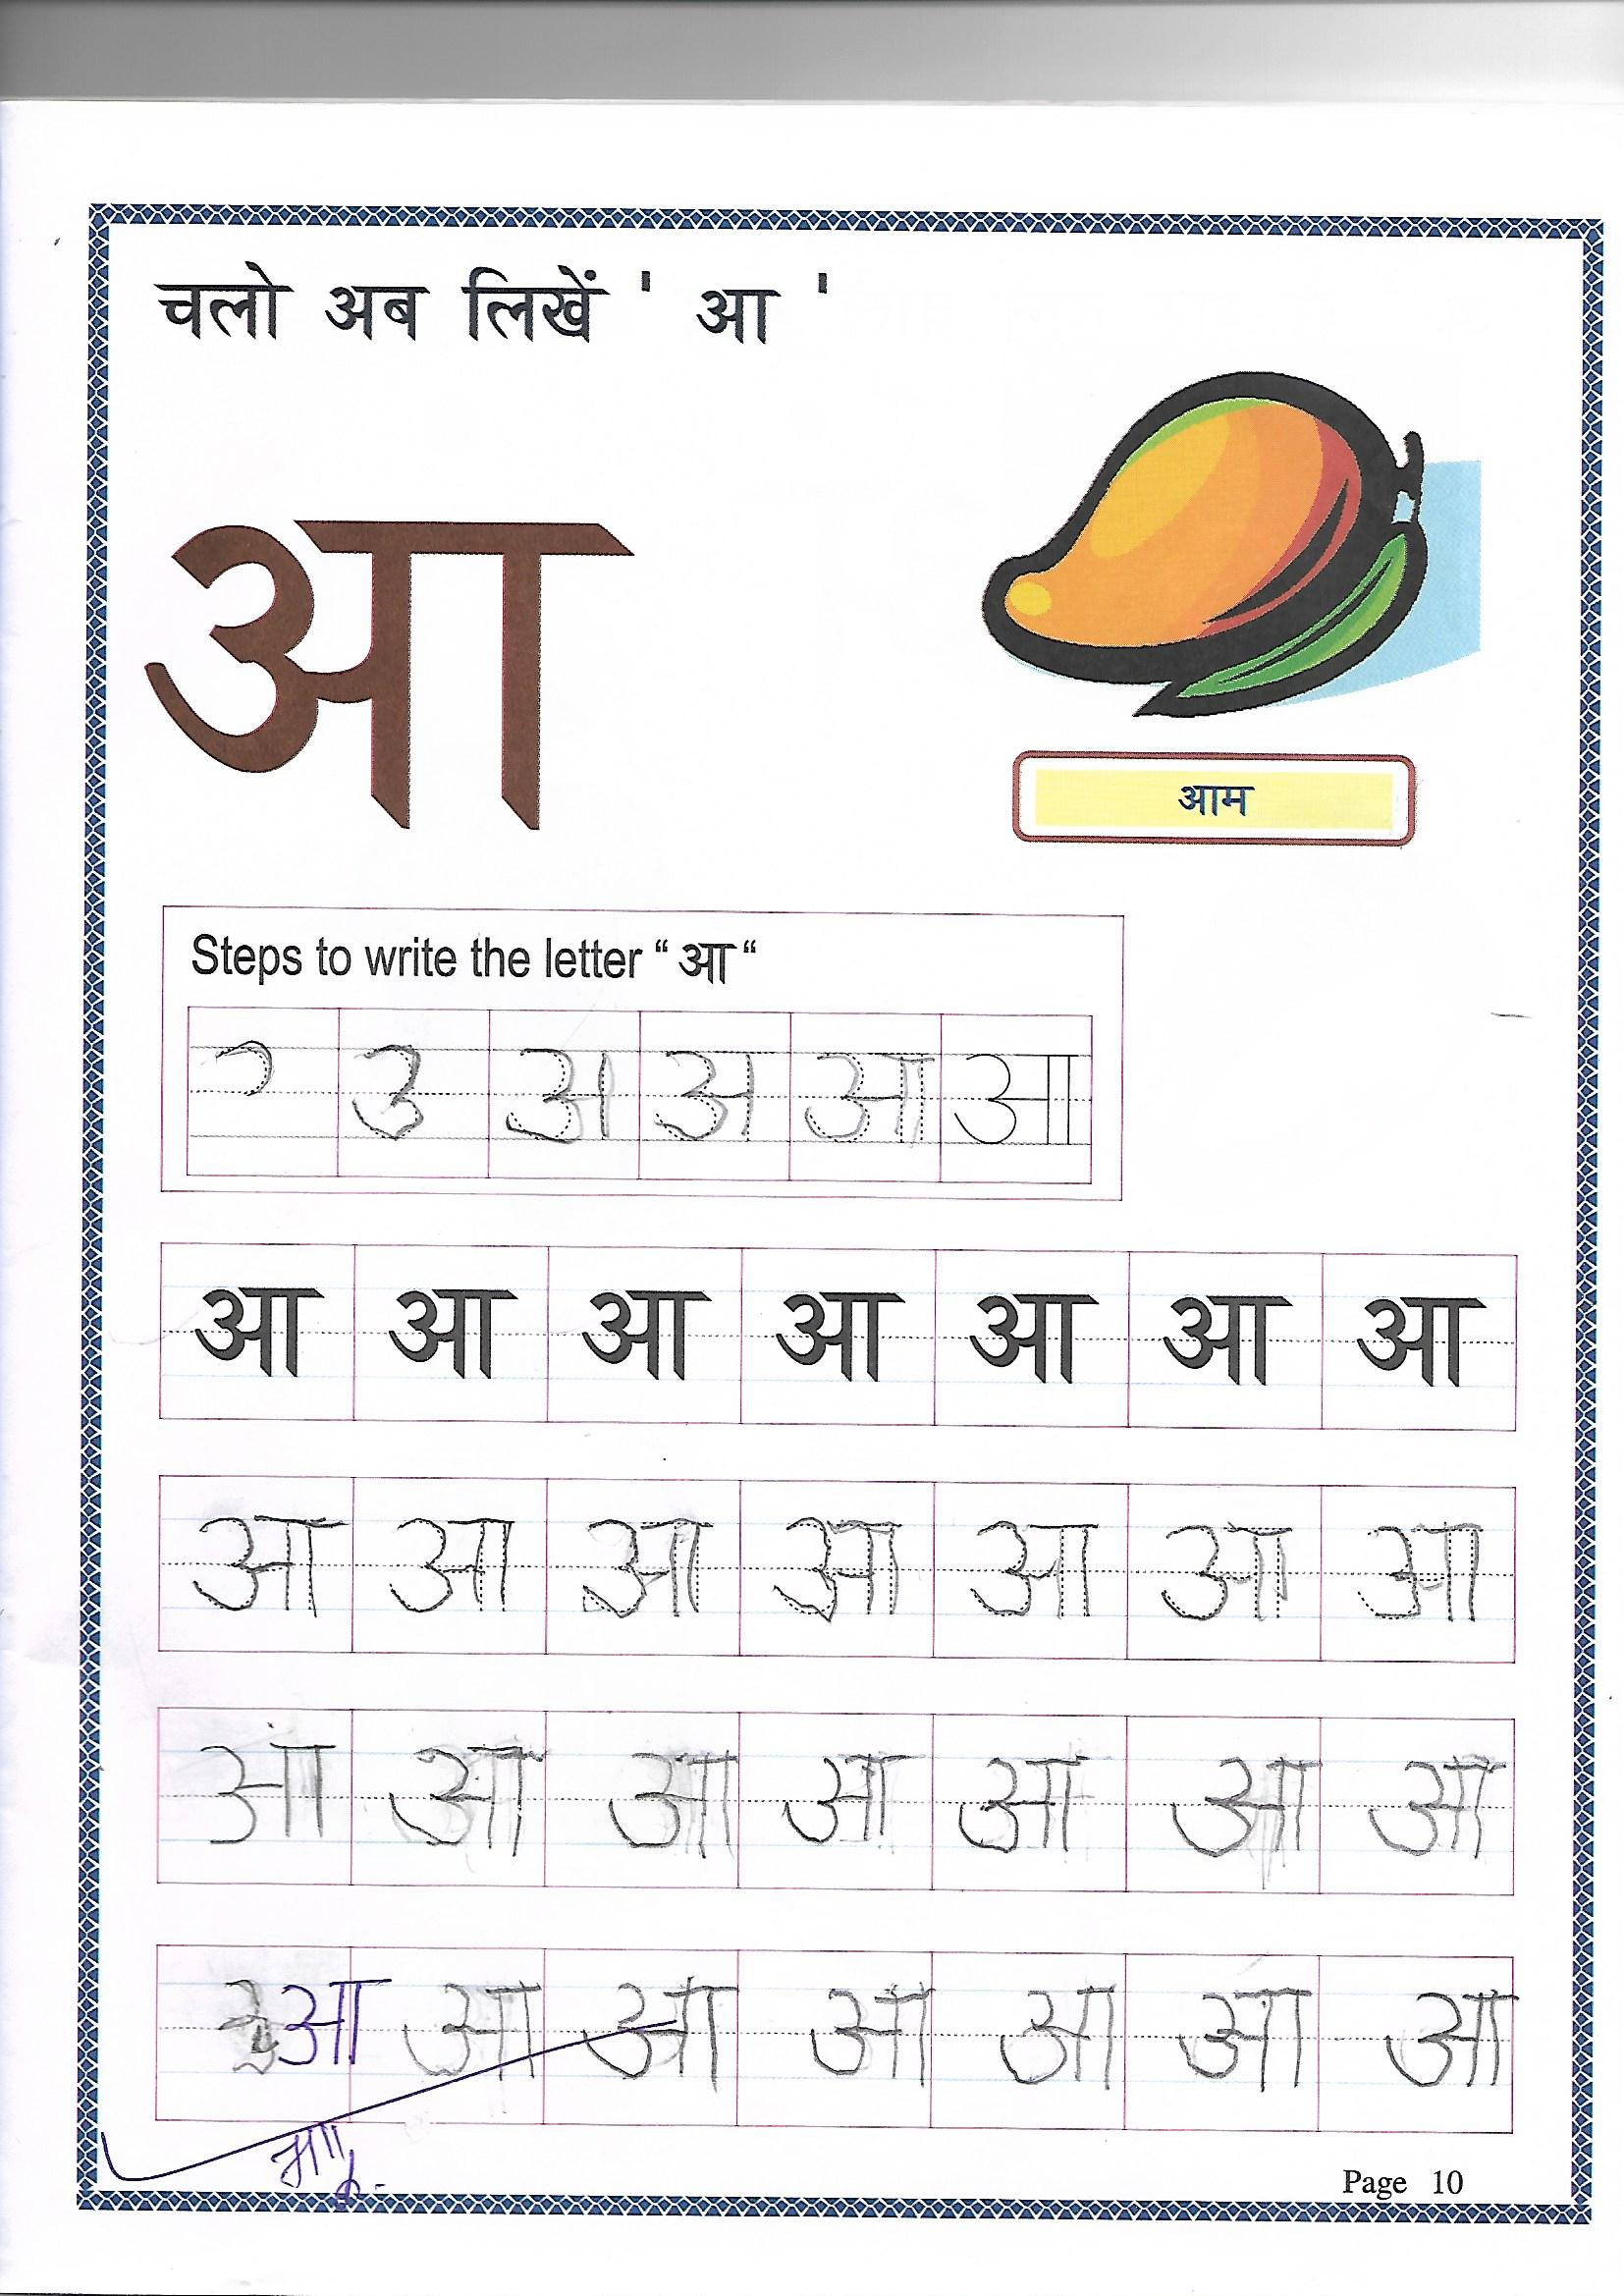 चलो अब लिखें ' आ '
आ
आम
Steps to write the letter “ आ “
उ अ अ आ आ
आ आ आ आ आ आ आ
आ आ आ आ आ आ आ
आ आ आ आ आ आ आ
आ आ आ आ आ आ आ
Page 10